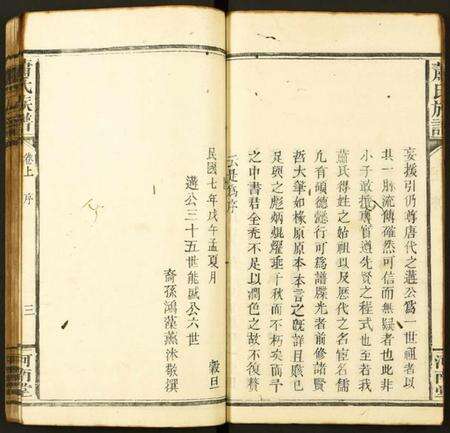 蕭氏族譜
妄援引仍尊唐代之遘公爲一世祖者以
其一脉流傳確然可信而無疑者也此非
小子敢擅專首遵先賢之程式也至若我
蕭氏得姓之始祖以及歷代之名宦名儒
凡有碩德懿行可爲譜牒光者前修諸賢
哲大筆如椽原原本本言之旣詳且贍已
足與之彪炳焜耀垂千秋而不朽矣而予
之中書君全禿不足以潤色之故不復贅
云是爲序
民國七年戊午孟夏月 穀旦
遘公三十五世能誠公六世
裔孫鴻 燕沐敬撰
蕭氏族譜 卷上 序 三 河南堂
河南堂